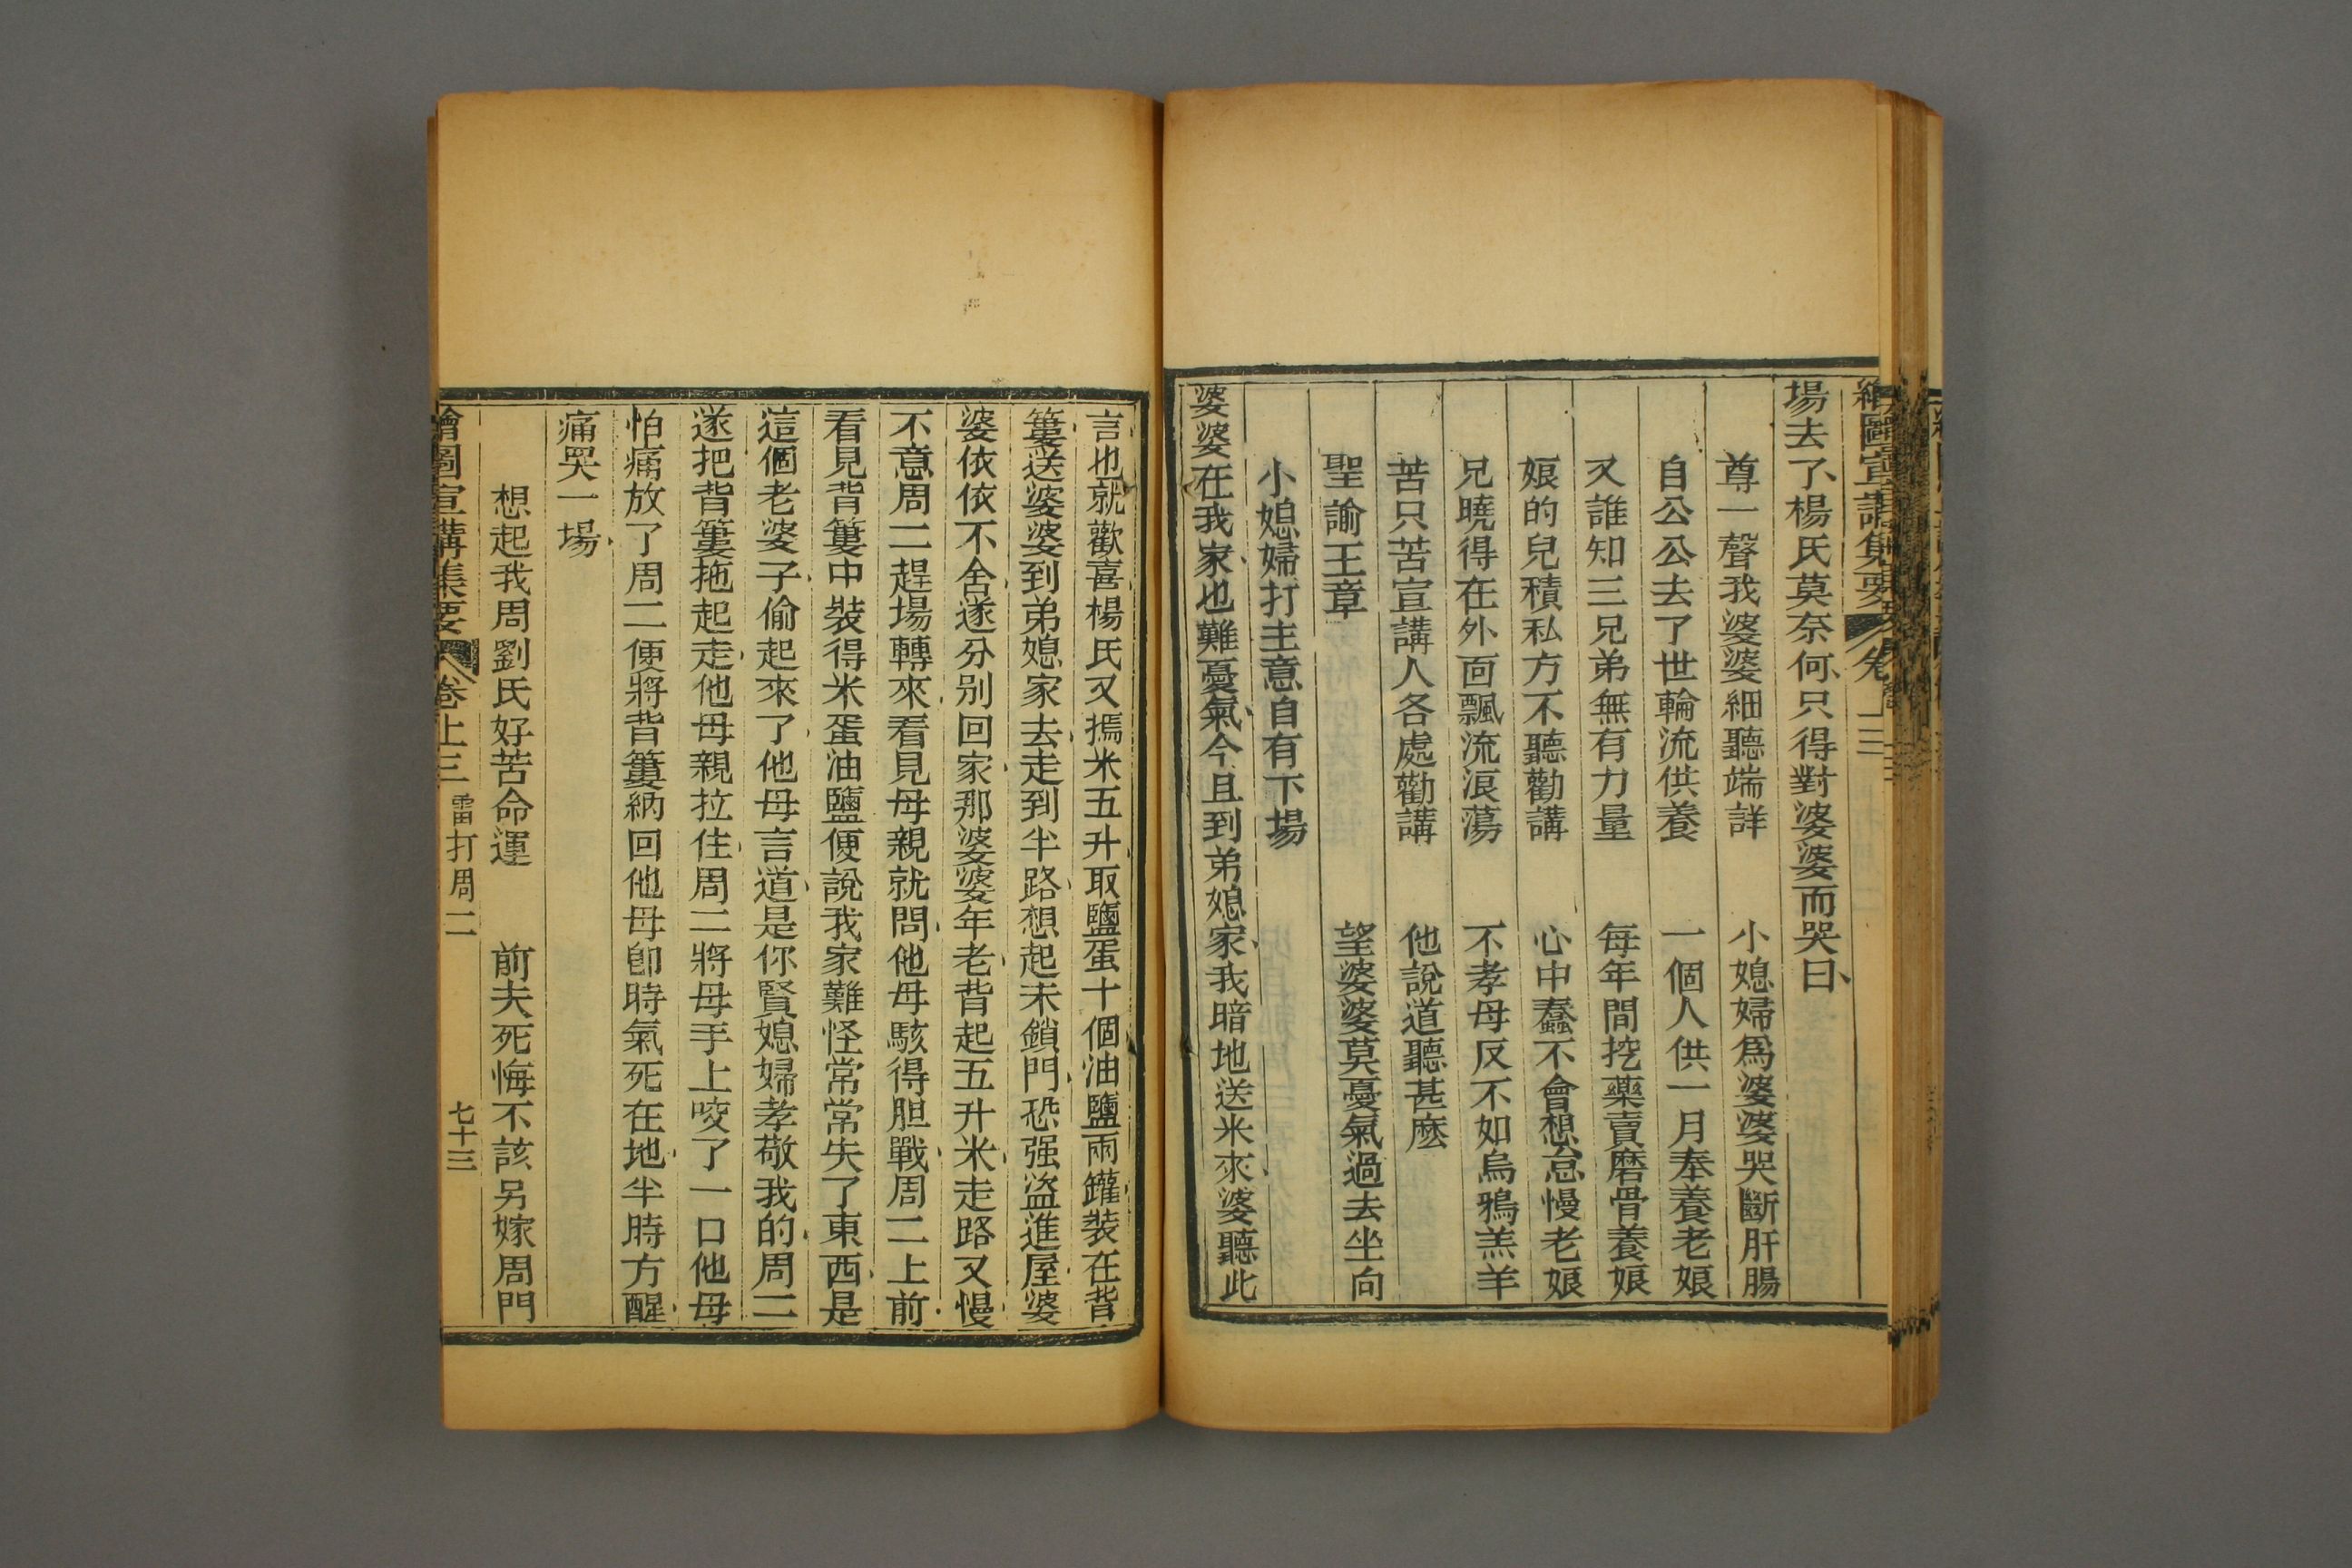 繪圖宣講集要 卷上三
場去了楊氏莫奈何只得對婆婆而哭曰
尊一聲我婆婆細聽端詳 小媳婦爲婆婆哭斷肝腸
自公公去了世輪流供養 一個人供一月奉養老娘
又誰知三兄弟無有力量 每年間挖藥賣磨骨養娘
娘的兒積私方不聽勸講 心中蠢不會想怠慢老娘
兄曉得在外面飄流浪蕩 不孝母反不如烏鴉羔羊
苦只苦宣講人各處勸講 他說道聽甚麽
聖諭王章 望婆婆莫憂氣過去坐向
小媳婦打主意自有下場
婆婆在我家也難憂氣今且到弟媳家我暗地送米來婆聽此
言也就歡喜楊氏又撝米五升取鹽蛋十個油鹽兩鑵裝在背
簍送婆婆到弟媳家去走到半路想起未鎖門恐强盜進屋婆
婆依依不舍遂分別回家那婆婆年老背起五升米走路又慢
不意周二趕場轉來看見母親就問他母駭得胆戰周二上前
看見背簍中裝得米蛋油鹽便說我家難怪常常失了東西是
這個老婆子偷起來了他母言道是你賢媳婦孝敬我的周二
遂把背簍拖起走他母親拉住周二將母手上咬了一口他母
怕痛放了周二便將背簍納回他母卽時氣死在地半時方醒
痛哭一場
想起我周劉氏好苦命運 前夫死悔不該另嫁周門
繪圖宣講集要 卷上三 雷打周二 七十三